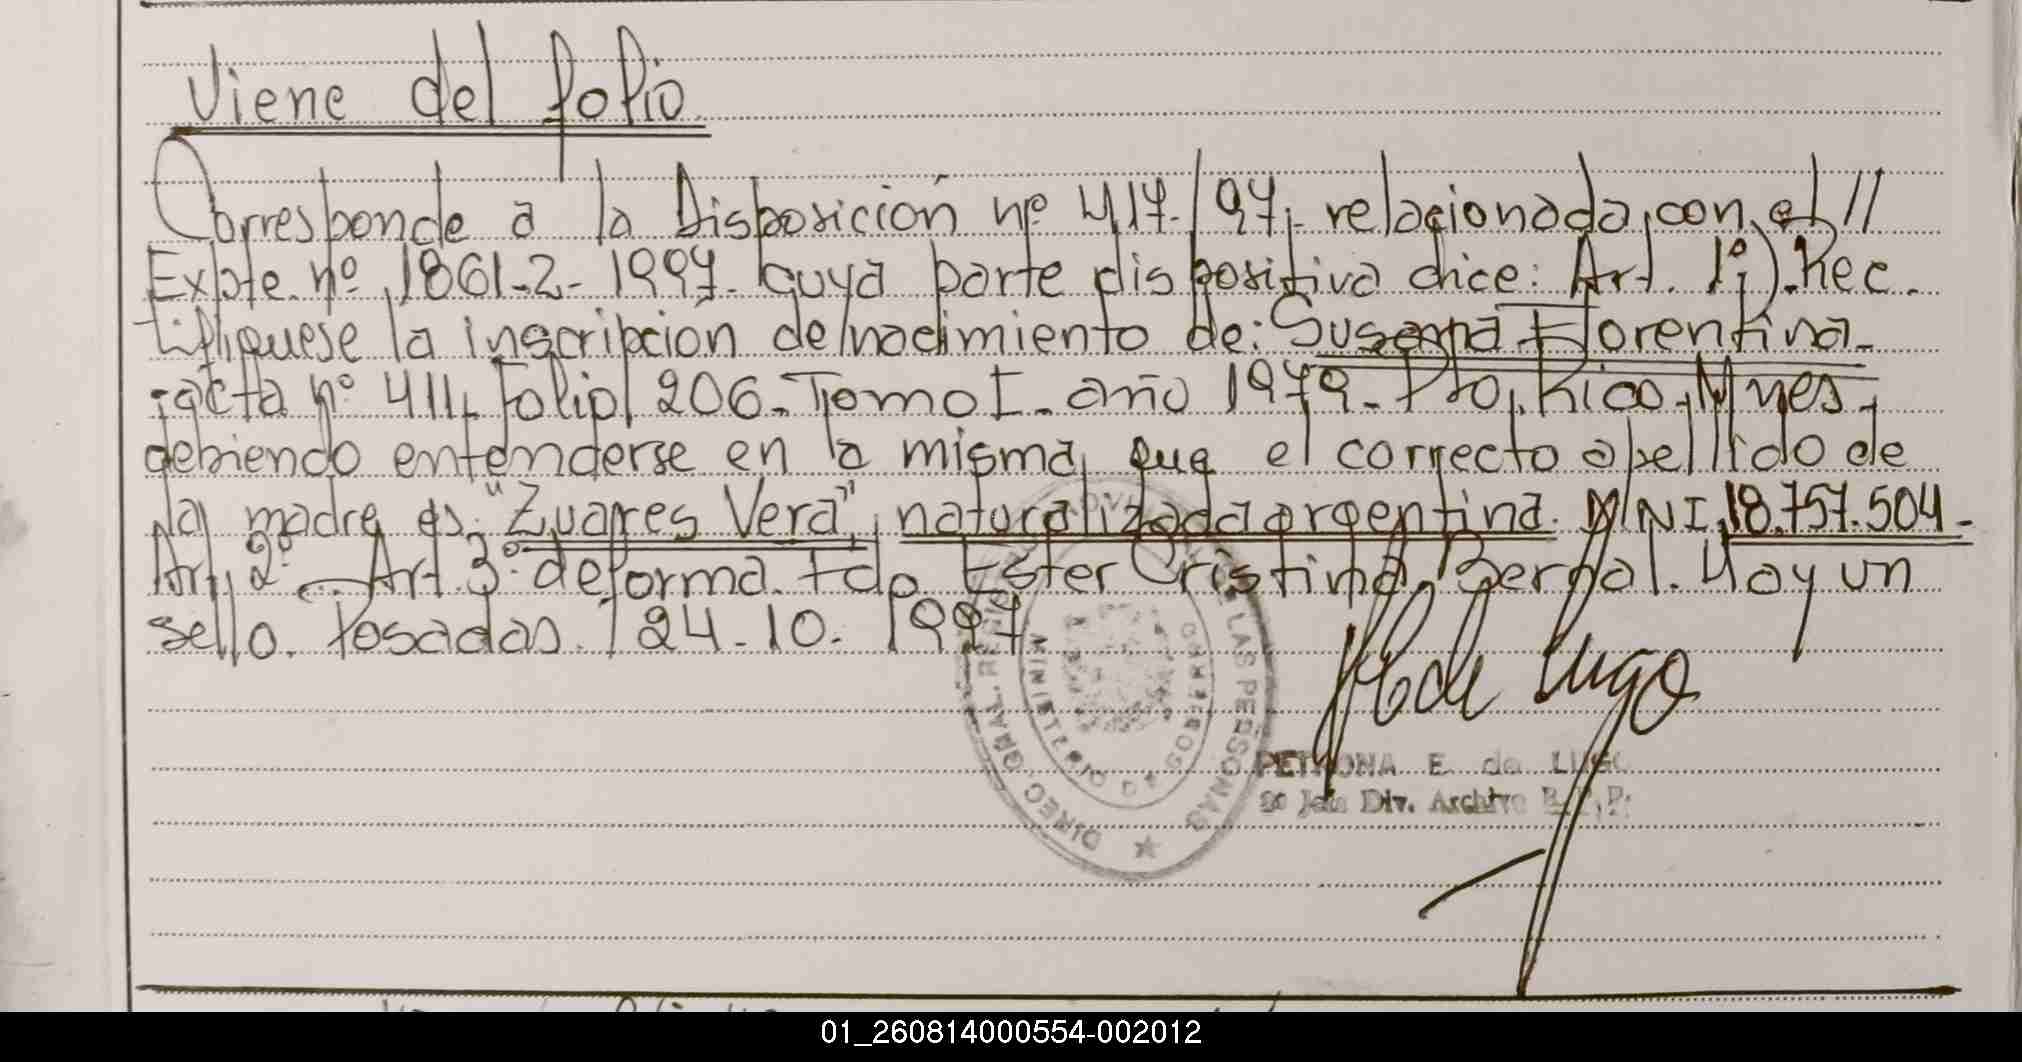 Viene del folio
Corresponde a la Disposición nº 417/97, relacionada con el //
Expte. nº 1861-2-1997 cuya parte dispositiva dice: Art. 1º) Rec
tifíquese la inscripción de nacimiento de: Susana Florentina
acta nº 411, Folio 206. Tomo I. año 1979. Pto. Rico, Mnes,
debiendo entenderse en la misma, que el correcto apellido de
la madre es: "Zuares Vera", naturalizada argentina. DNI 18.757.504-
Art. 2º Art. 3º de forma. Fdo Ester Cristina Bernal. Hay un
sello. Posadas. 24-10-1997
de Lugo
PETRONA E. de LUGO
Div. Archivo R.P.P.
DIREC. GRAL. LAS PERSONAS
MINISTERIO DE GOBIERNO
01_260814000554-002012